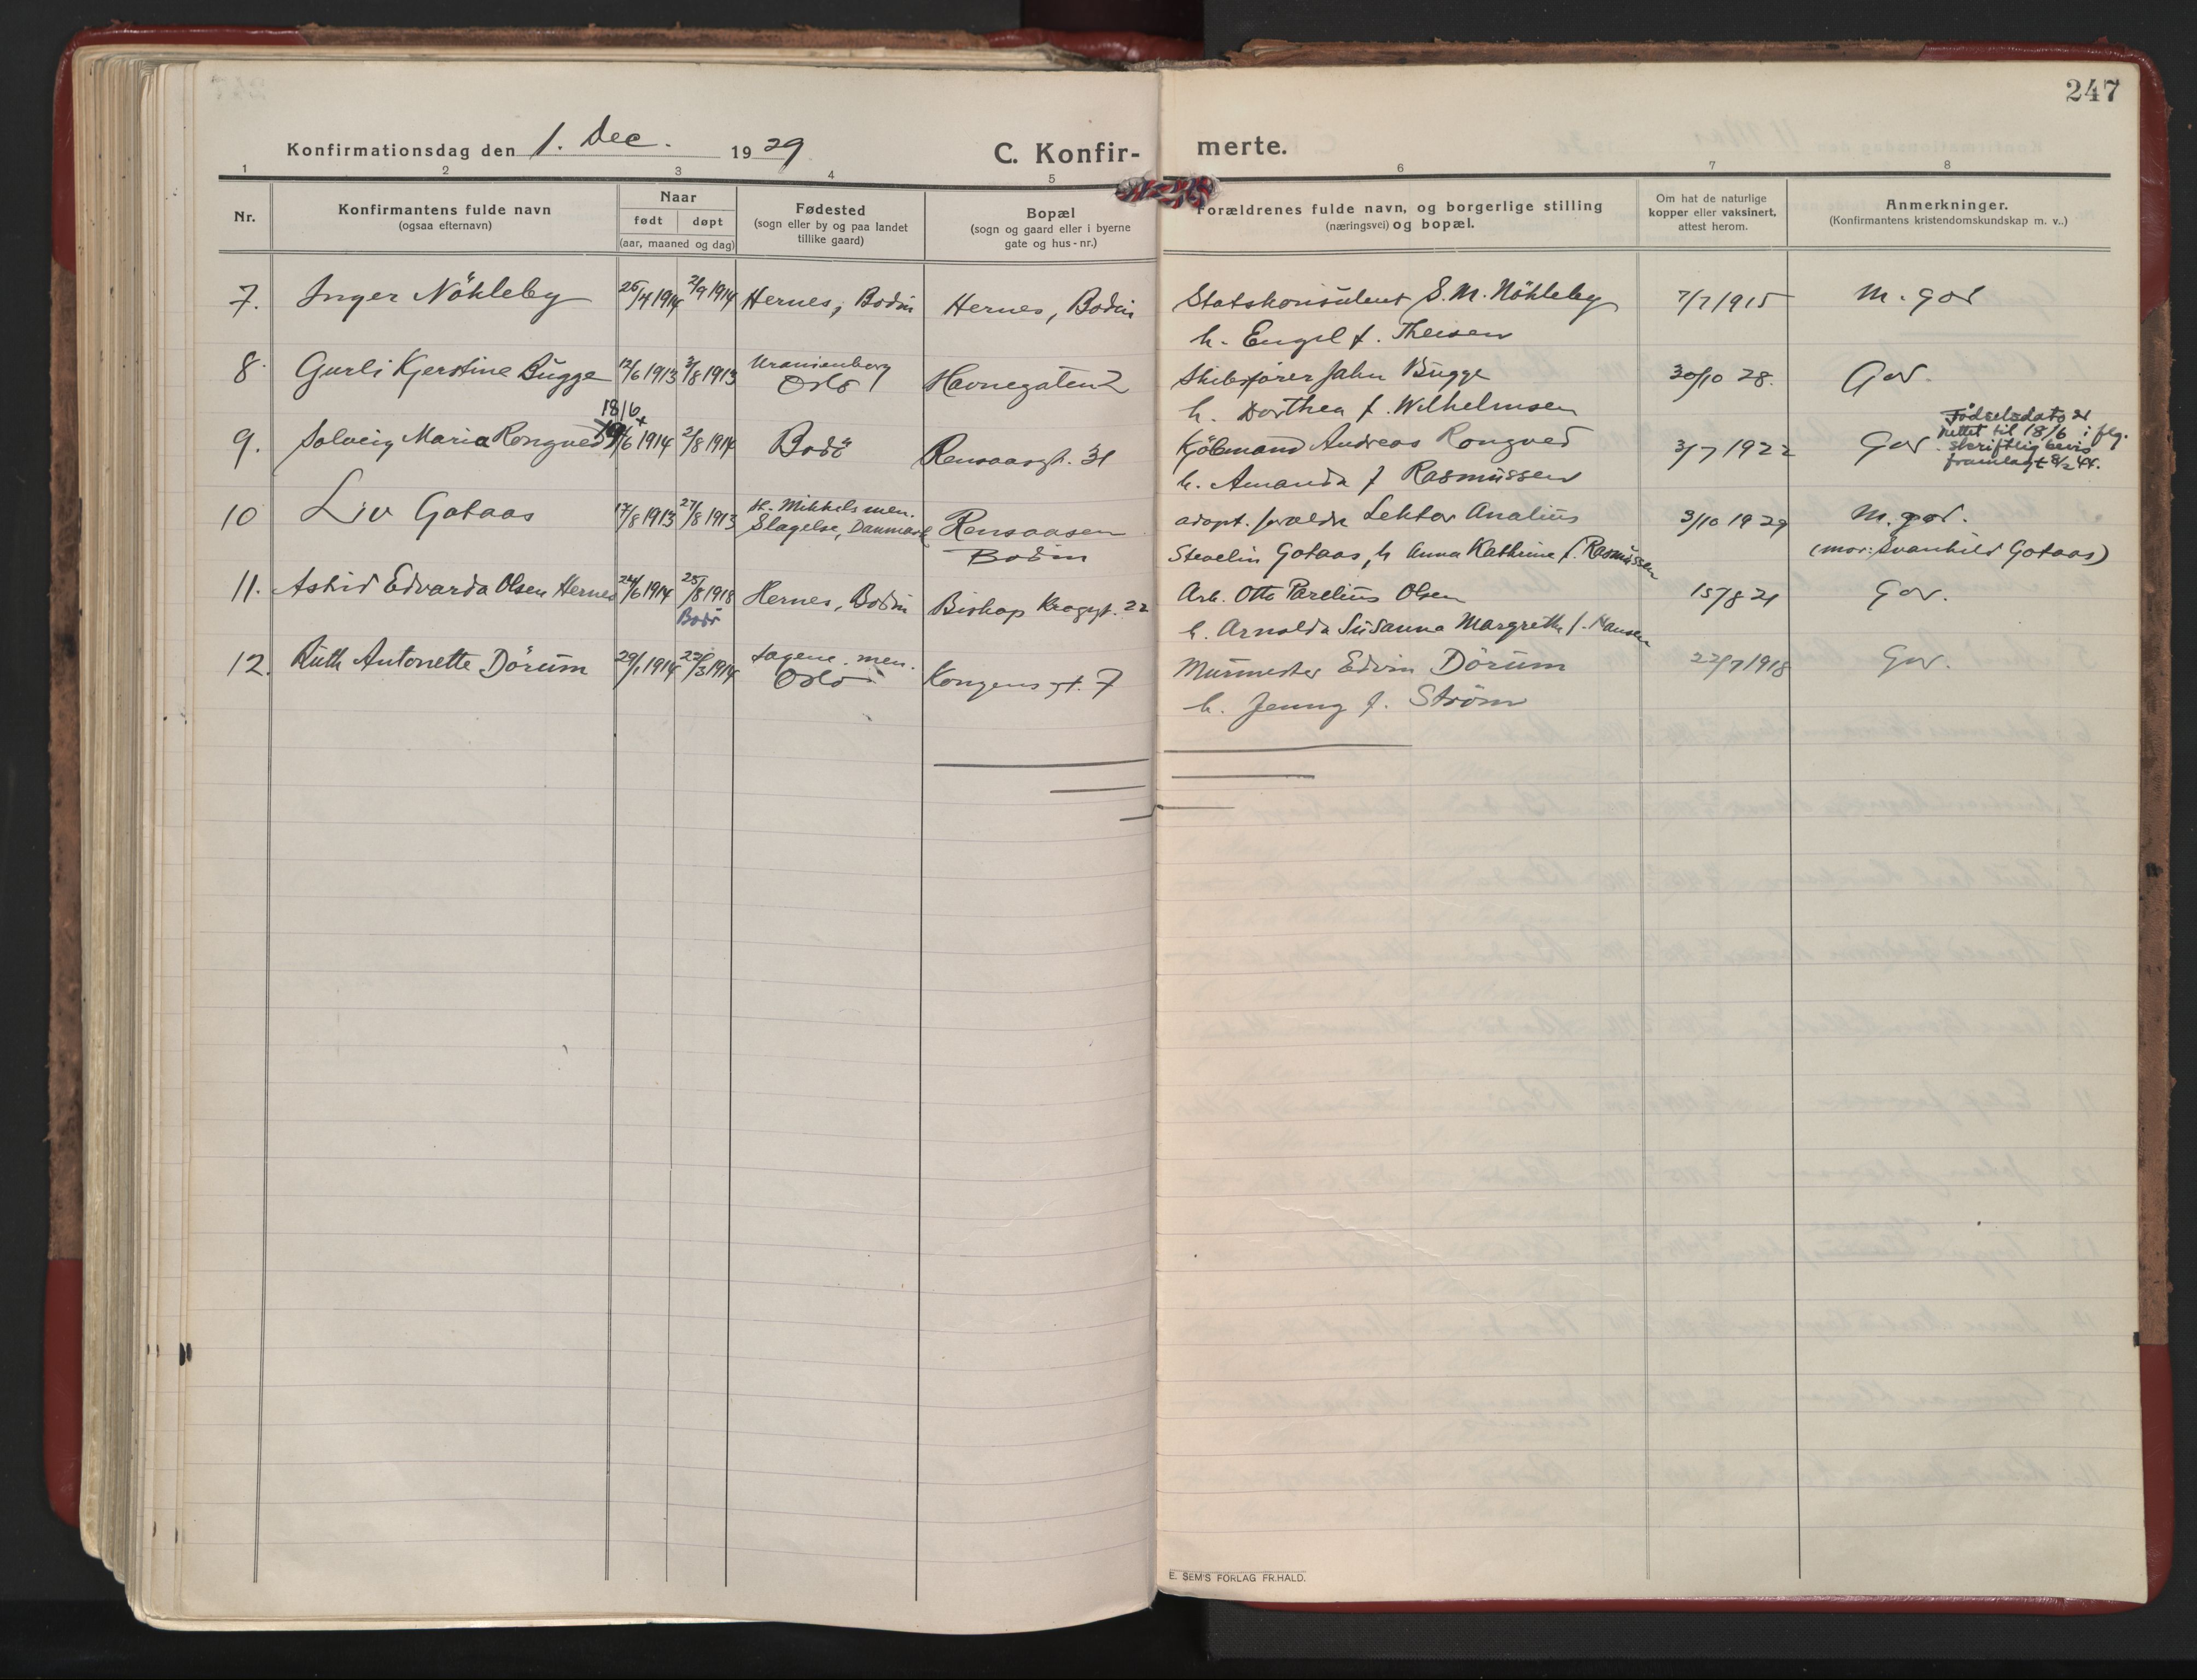 247
Konfirmationsdag den 1. Dec. 1929
C. Konfir- merte.
1 2 3 4 5 6 7 8
Nr.
Konfirmantens fulde navn
(ogsaa efternavn)
Naar
født døpt
(aar, maaned og dag)
Fødested
(sogn eller by og paa landet
tillike gaard)
Bopæl
(sogn og gaard eller i byerne
gate og hus-nr.)
Forældrenes fulde navn, og borgerlige stilling
(næringsvei) og bopæl.
Om hat de naturlige
kopper eller vaksinert,
attest herom.
Anmerkninger.
(Konfirmantens kristendomskundskap m. v..)
7. Inger Nökleby 25/4 1914 2/9 1914 Hernes, Bodin Hernes, Bodin Statskonsulent S. M. Nökleby 7/7 1915 M. god
h. Engel f. Theisen
8 Gurli Kjerstine Bugge 12/6 1913 3/8 1913 Uranienborg Oslo Havnegaten 2 Skibsfører John Bugge 30/10 28. God.
h. Dorthea f. Wilhelmsen
18/6
9. Solveig Maria Rongved 19/6 1914 2/8 1914 Bodö Rensaasgt. 31 Kjöbmand Andreas Rongved 3/7 1922 God.
Födselsdato er
rettet til 18/6 i flg.
skriftlig bevis
framlagt 8/2 44.
h. Amanda f Rasmüssen
10 Liv Gotaas 17/8 1913 27/8 1913 St. Mikkels men. Slagelse, Danmark Rensaasen Bodin adopt. forældre Lektor Analius 3/10 1929 M. god.
Stevelin Gotaas, h Anna Kathrine f. Rasmüssen (mor: Svanhild Gotaas)
11. Astrid Edvarda Olsen Hernes 24/6 1914 25/8 1918 Bodö Hernes, Bodin Biskop Kroggt. 22 Arb. Otto Parelius Olsen 15/8 21 God.
h. Arnolda Susanna Margrethe f. Hansen
12. Ruth Antonette Dörum 29/1 1914 22/3 1914 Sagene men. Oslo Kongens gt. 7 Murmester Edvin Dörum 22/7 1918 God.
h. Jenny f. Ström
E. SEM'S FORLAG FR.HALD.